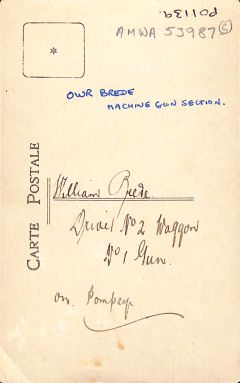 P01139.
AMWA 53987 (5)
OWR BREDE
MACHINE GUN SECTION.
CARTE POSTALE
William Brede.
Driver No 2 Waggon
No 1 Gun.
on Pompey